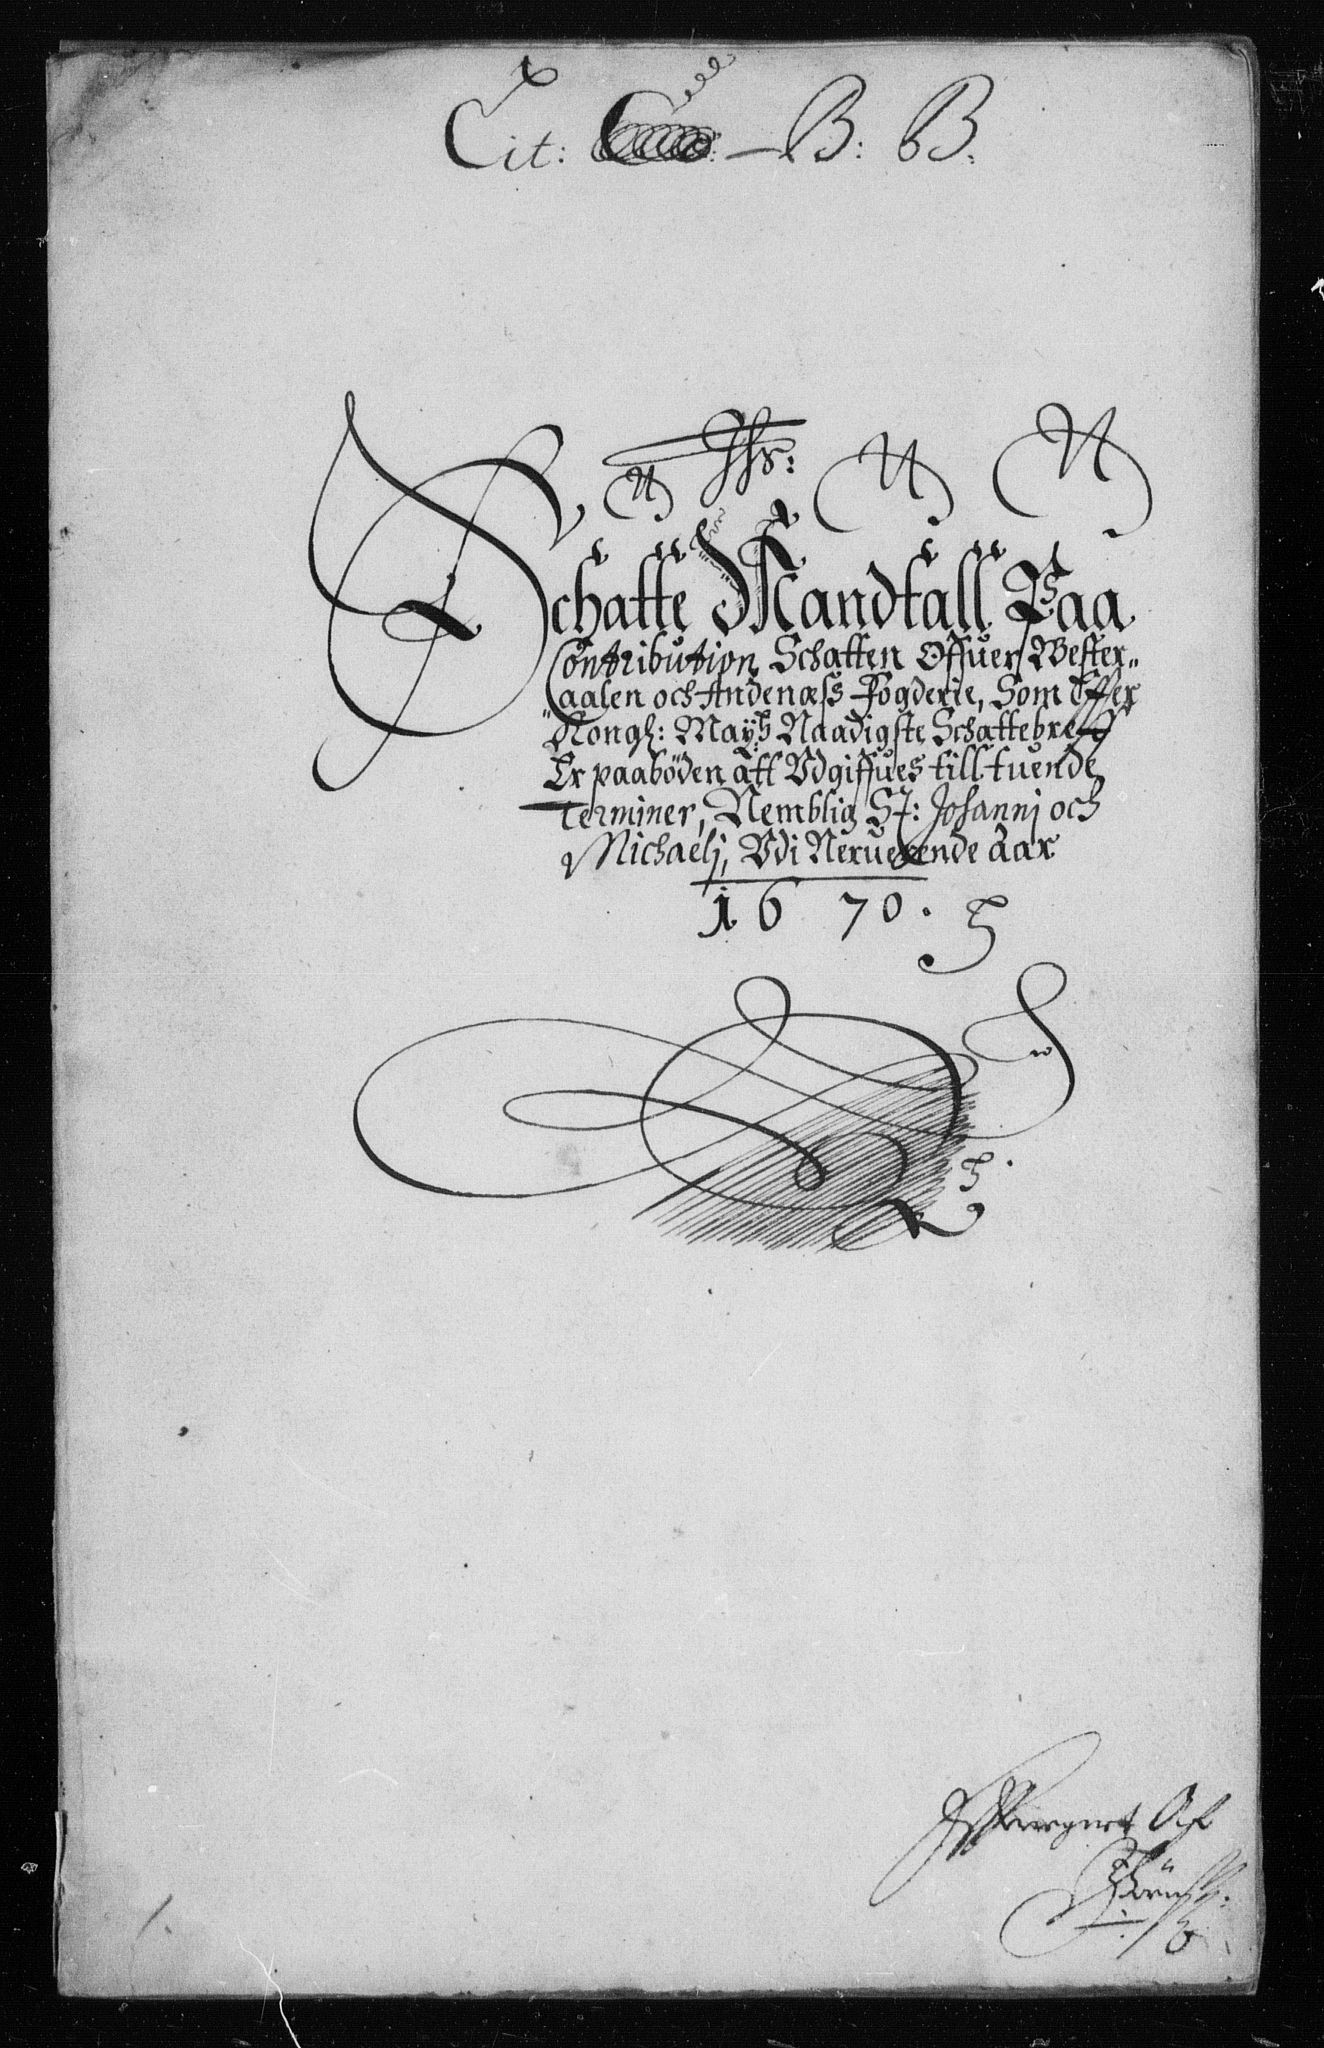 Lit: B: B:
Schatte Mandtall Paa
Contribution Schatten Offuer Wester=
aalen och Andenæss Fogderie, Som Effter
Kongl: Mayts Naadigste Schattebreff
Er paaböden att Vdgiffues till tuende
Terminer, Nemblig St: Johannj och
Michaelj, Vdi Neruerende Aar
1670.